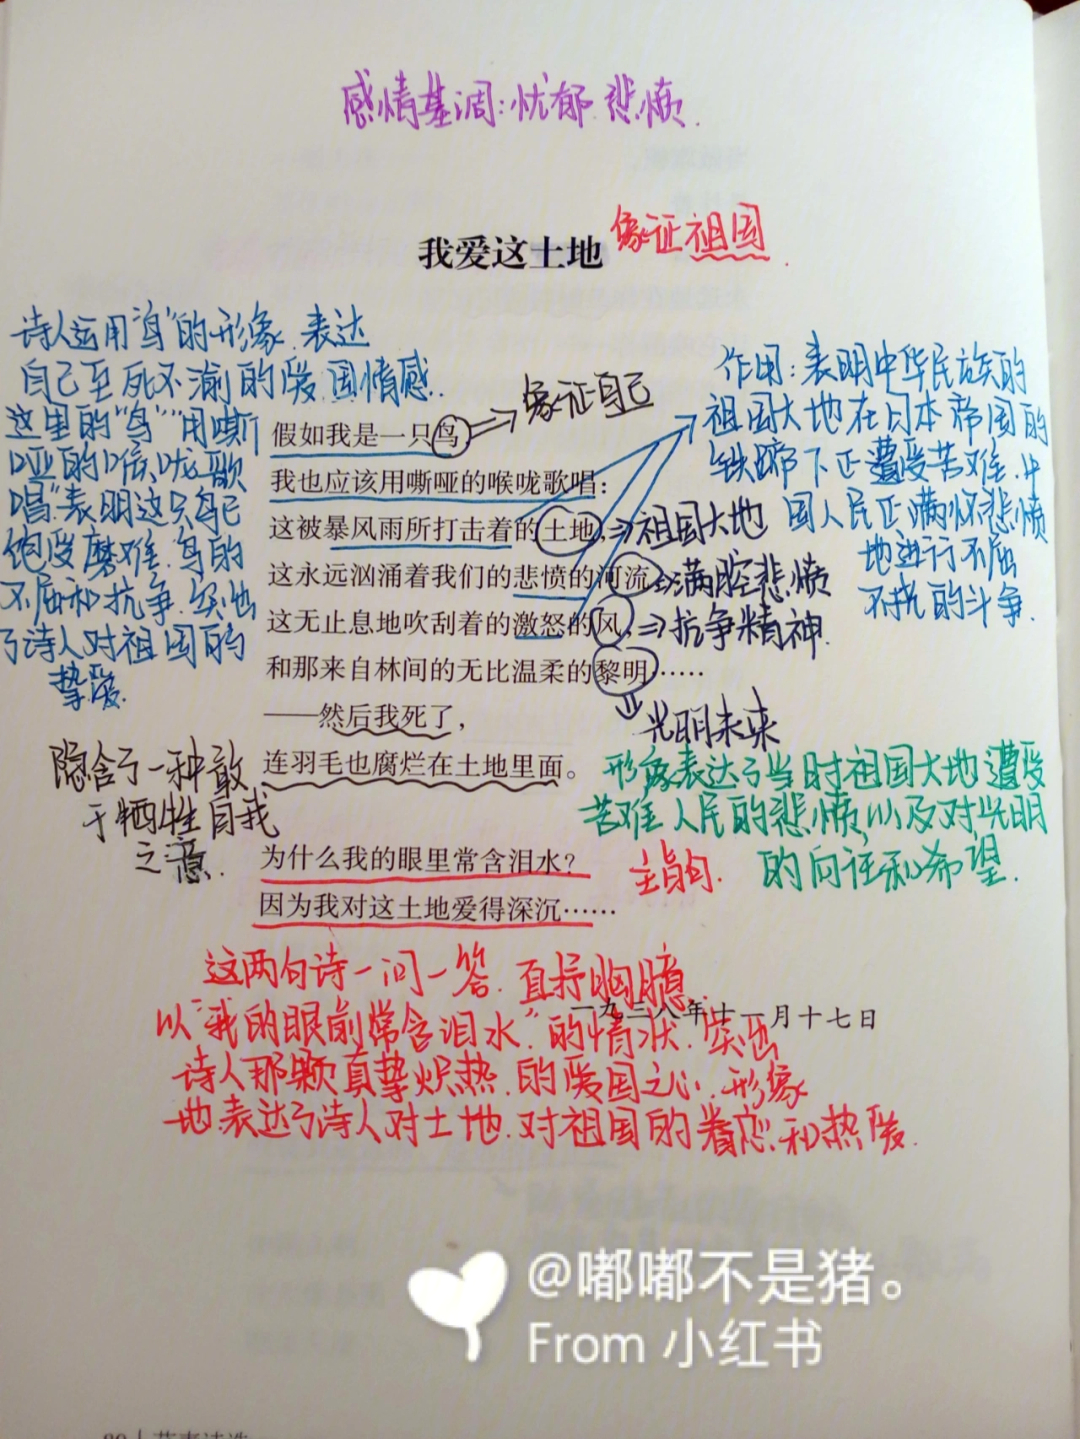 感情基调:忧郁 悲愤.
我爱这土地
象证祖国.
诗人运用"鸟"的形象.表达
自己至死不渝的爱国情感.
这里的"鸟""用嘶
哑的喉咙歌
唱"表明这只鸟已
饱受磨难.鸟的
不屈和抗争.突出
了诗人对祖国的
挚爱.
作用:表明中华民族的
祖国大地在日本帝国的
铁蹄下正遭受苦难.中
国人民正满怀悲愤
地进行不屈
不抗的斗争.
假如我是一只鸟,
象证自己
我也应该用嘶哑的喉咙歌唱:
这被暴风雨所打击着的土地,
祖国大地
这永远汹涌着我们的悲愤的河流,
满腔悲愤
这无止息地吹刮着的激怒的风,
抗争精神.
和那来自林间的无比温柔的黎明……
光明未来
——然后我死了,
连羽毛也腐烂在土地里面。
隐含了一种敢
于牺牲自我
之意.
形象表达了当时祖国大地遭受
苦难.人民的悲愤,以及对光明
的向往和希望.
为什么我的眼里常含泪水?
因为我对这土地爱得深沉……
主旨句.
这两句诗一问一答.直抒胸臆.
一九三八年十一月十七日
以"我的眼前常含泪水"的情状.突出
诗人那颗真挚炽热.的爱国之心.形象
地表达了诗人对土地.对祖国的眷恋和热爱.
@嘟嘟不是猪。
From 小红书